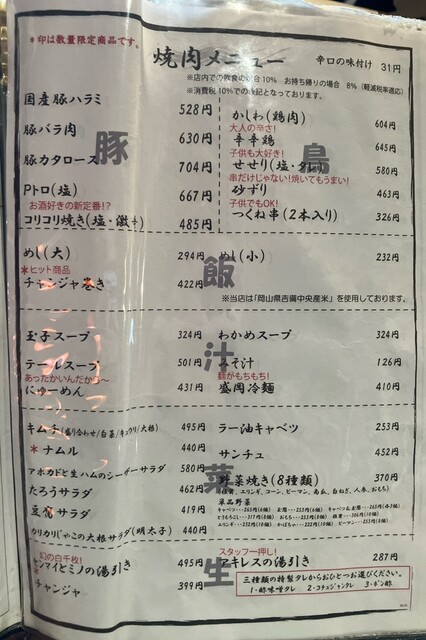 *印は数量限定商品です。
焼肉メニュー
辛口の味付け 31円
※店内での飲食の場合10% お持ち帰りの場合 8%(軽減税率適応)
※消費税10%での表記となっております。
豚
国産豚ハラミ 528円
豚バラ肉 630円
豚カタロース 704円
Pトロ(塩) 667円
お酒好きの新定番!?
コリコリ焼き(塩・激辛) 485円
鳥
かしわ(鶏肉) 604円
大人の辛さ!
辛辛鶏 645円
子供も大好き!
せせり(塩・タレ) 580円
串だけじゃない!焼いてもうまい!
砂ずり 463円
子供でもOK!
つくね串(2本入り) 326円
飯
めし(大) 294円
*ヒット商品
チャンジャ巻き 422円
めし(小) 232円
※当店は「岡山県吉備中央産米」を使用しております。
汁
玉子スープ 324円
テールスープ 501円
あったかいんだから〜
にゅーめん 431円
わかめスープ 324円
みそ汁 126円
麺がもちもち!
盛岡冷麺 410円
菜
キムチ(盛り合わせ/白菜/キュウリ/大根) 495円
*ナムル 440円
アボカドと生ハムのシーザーサラダ 580円
たろうサラダ 462円
豆腐サラダ 419円
カリカリじゃこの大根サラダ(明太子) 440円
ラー油キャベツ 253円
サンチュ 452円
野菜焼き(8種類) 370円
単品野菜
生
幻の白千枚!
センマイとミノの湯引き 495円
チャンジャ 399円
スタッフ一押し!
アキレスの湯引き 287円
三種類の特製タレからおひとつお選びください。
1・酢味噌タレ 2・コチュジャンタレ 3・ポン酢